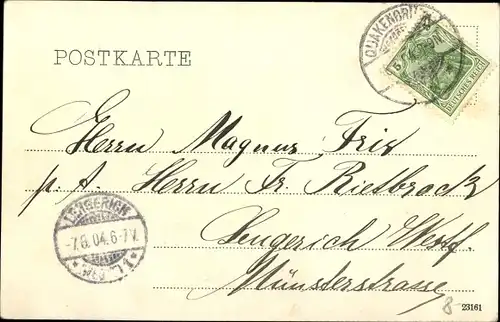 POSTKARTE
QUAKENBRÜCK
5
DEUTSCHES REICH
Herrn Magnus Fris
p. A. Herrn Fr. Rietbrock
Lengerich Westf.
Münsterstrasse
LENGERICH
-7.8.04.6-7V.
8
23161